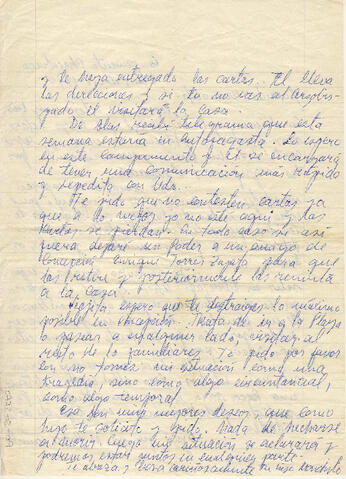 y te haya entregado las cartas. El lleva
las direcciones y si tu no vas al
pado él visitará la casa
De Blas recibí telegrama que esta
semana estaría en Antofagasta. Lo espero
en este campamento y él se encargara
de tener una comunicación más rápida
y expedita con Uds.
Te pido que no contesten cartas ya
que a lo mejor yo no esté aqui y las
se pierdan. En todo caso si asi
fuera dejaré un Poder a un amigo de
Concepción Enrique Torres Zapata para que
las retire y posteriormente las remita
a la casa.
espero que te distraigas lo máximo
posible en Concepción. Trata de ir a la Playa
o pasear a cualquier lado, visitar al
resto de los familiares. Te pido por favor
no tomes mi situación como una
tragedia, sino como algo circunstancial,
como algo temporal
Esos son mis mejores deseos, que como
hijo te solicito y pido. Nada de echarse
a morir. Luego mi situación se aclarará y
podremos estar juntos en cualquier parte.
Te abraza y besa cariñosamente tu hijo